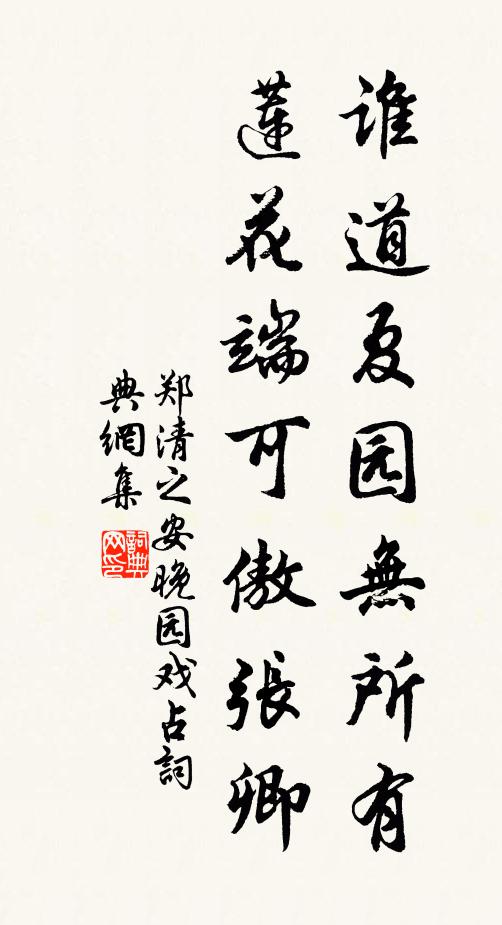 谁道夏园無所有
蓮花端可傲張卿
郑清之安晚园戏占詞
典網集
詞典
网印